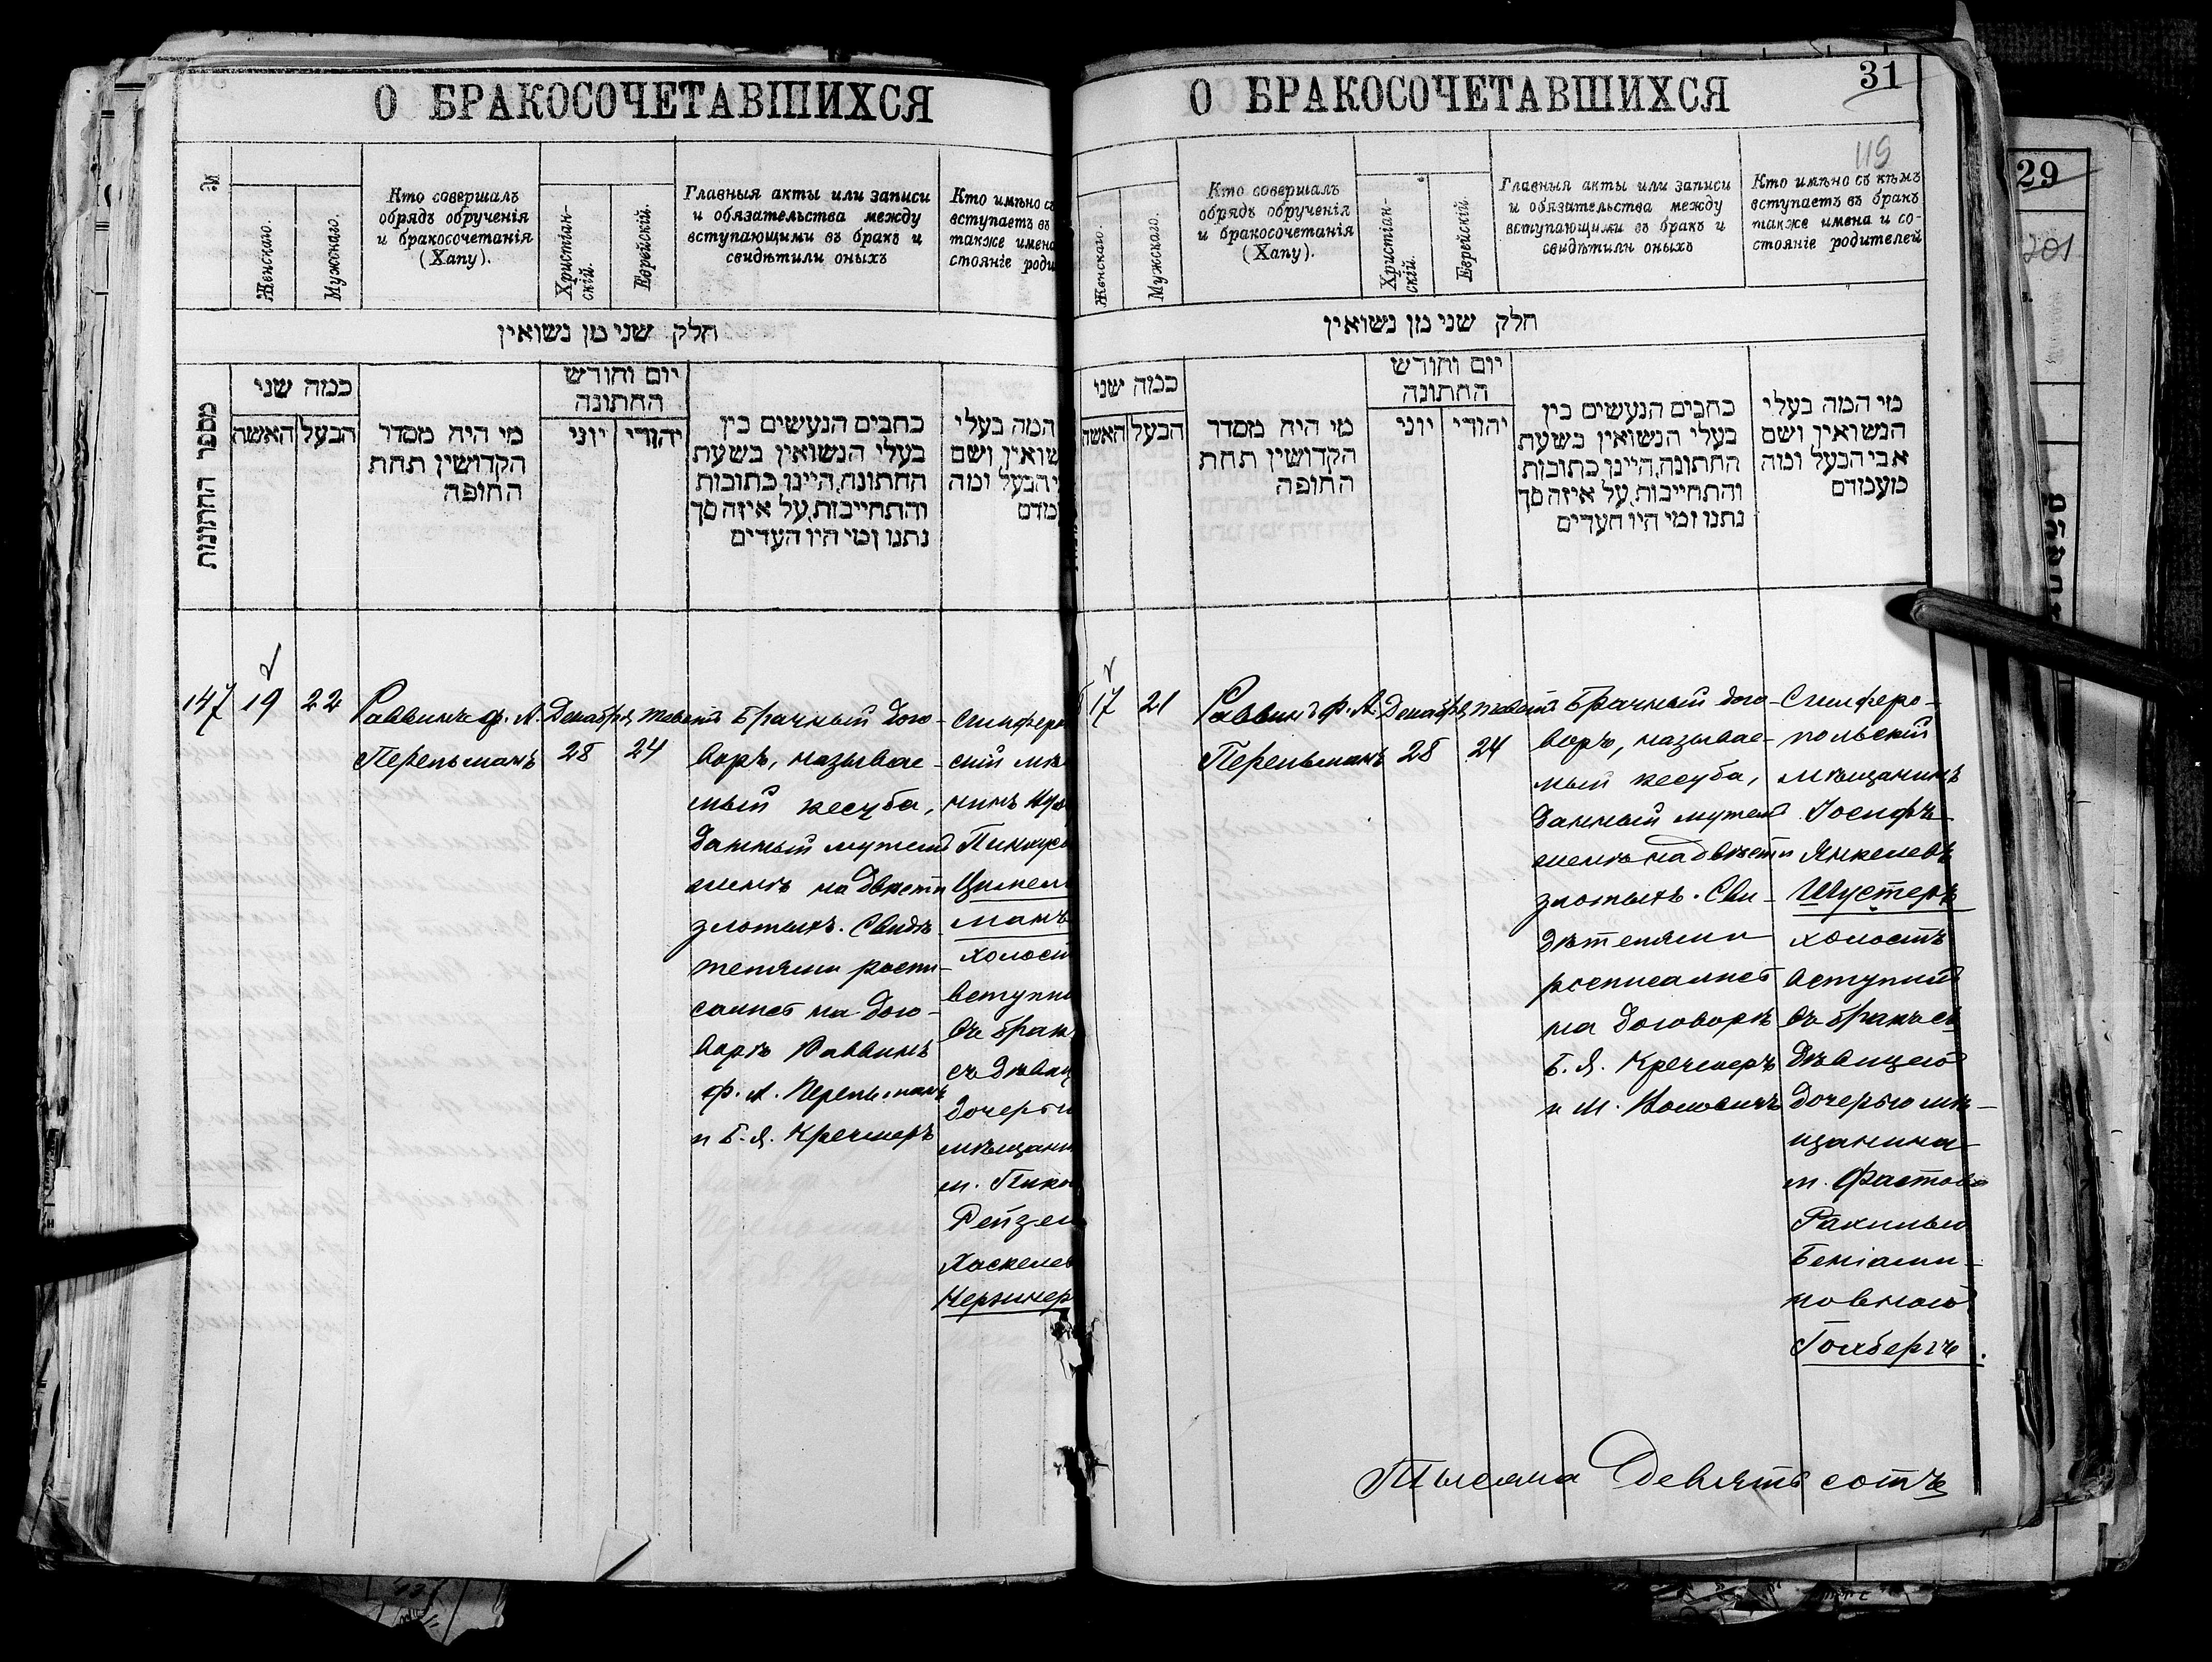 О БРАКОСОЧЕТАВШИХСЯ
№
Женскаго.
Мужскаго.
Кто совершалъ
обрядъ обрученія
и бракосочетанія
(Хапу).
Христіан-
скій.
Еврейскій.
Главныя акты или записи
и обязательства между
вступающими въ бракъ и
свидѣтили оныхъ
Кто имѣно съ
вступаетъ въ
также имена
стояніе роди
חלק שני מן נשואין
מספר החתונות
כמה שני
האשה
הבעל
מי היה מסדר
הקדושין תחת
החופה
יום וחודש
החתונה
יוני
יהודי
כתבים הנעשים בין
בעלי הנשואין בשעת
החתונה, היינו כתובות
והתחייבות, על איזה סך
נתנו ומי היו העדים
המה בעלי
שואין ושם
י הבעל ומה
מדם
147
19
22
Раввинъ Ф. А.
Перельманъ
Декабря
28
Тевета
24
Брачный дого-
воръ, называе-
мый кесуба,
данный мужемъ
женѣ на двѣсти
злотыхъ. Свидѣ-
телями роспи-
сались на дого-
ворѣ Раввинъ
Ф. А. Перельманъ
и Б. Я. Кречмеръ
Симферо
скій мѣ
нинъ
Пинкусъ
Цимел
манъ
холост
вступи
въ брак
съ дѣвиц
дочерью
мѣщани
м.
Рейзе
Хаскелев
О БРАКОСОЧЕТАВШИХСЯ
31
115
Женскаго.
Мужскаго.
Кто совершалъ
обрядъ обрученія
и бракосочетанія
(Хапу).
Христіан-
скій.
Еврейскій.
Главныя акты или записи
и обязательства между
вступающими въ бракъ и
свидѣтили оныхъ
Кто имѣно съ кѣмъ
вступаетъ въ бракъ
также имена и со-
стояніе родителей
חלק שני מן נשואין
כמה שני
האשה
הבעל
מי היה מסדר
הקדושין תחת
החופה
יום וחודש
החתונה
יוני
יהודי
כתבים הנעשים בין
בעלי הנשואין בשעת
החתונה, היינו כתובות
והתחייבות, על איזה סך
נתנו ומי היו העדים
מי המה בעלי
הנשואין ושם
אבי הבעל ומה
מעמדם
17
21
Раввинъ Ф. А.
Перельманъ
Декабря
28
Тевета
24
Брачный дого-
воръ, называе-
мый кесуба,
данный мужемъ
женѣ на двѣсти
злотыхъ. Сви-
дѣтелями
росписались
на договорѣ
Б. Я. Кречмеръ
и М.
Симферо-
польскій
мѣщанинъ
Іосифъ
Янкелевъ
Шустеръ
холостъ
вступилъ
въ бракъ съ
дѣвицею
дочерью мѣ-
щанина
м. Фастова
Рахилью
Беніами-
новною
Голбергъ.
Тысяча девятьсотъ
29
201